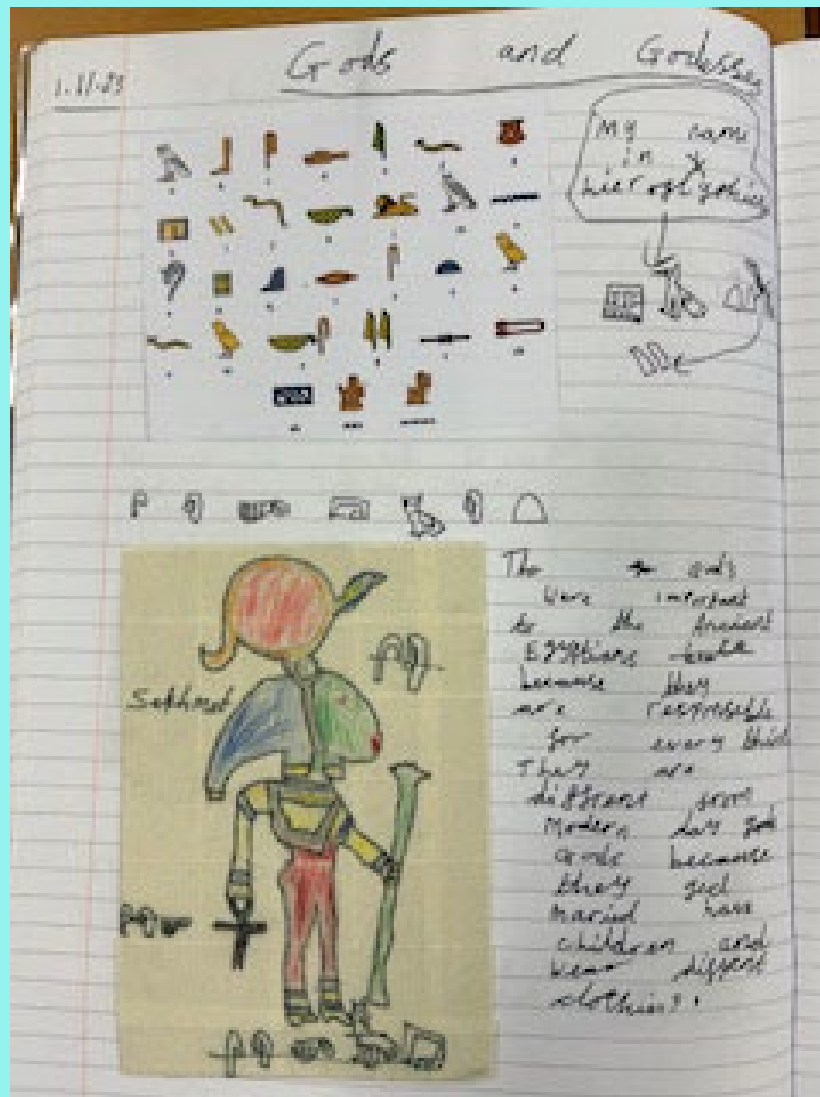 1.11.23
Gods and Godesses
My name
in
hieroglyphics
Sekhmet
The gods
were important
to the Ancient
Egyptians
because they
are responsible
for every thing
They are
different from
Modern day gods
Gods because
they get
maried have
children and
wear